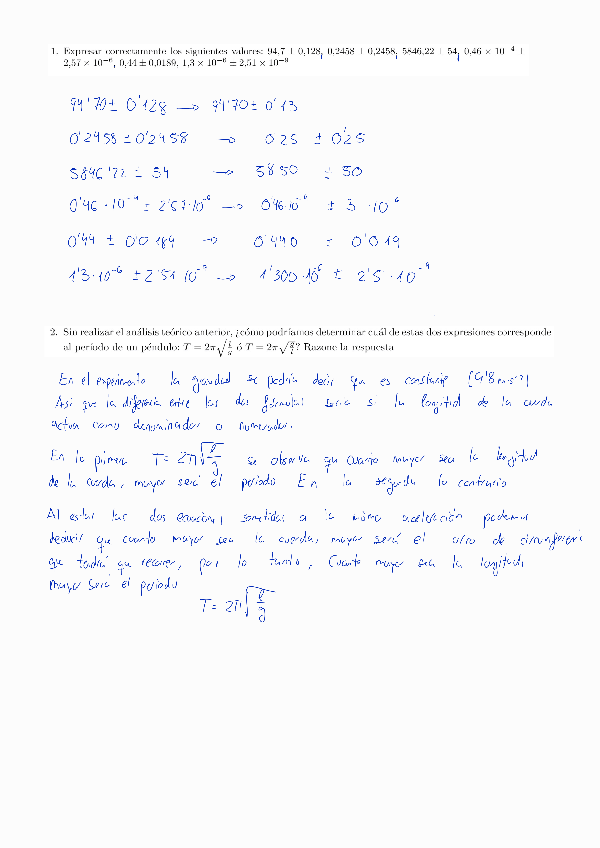 1. Expresar correctamente los siguientes valores: 94,7 ± 0,128, 0,2458 ± 0,2458, 5846,22 ± 54, 0,46 × 10⁻⁴ ±
2,57 × 10⁻⁶, 0,44 ± 0,0189, 1,3 × 10⁻⁶ ± 2,51 × 10⁻⁹
94'70 ± 0'128 → 94'70 ± 0'13
0'2458 ± 0'2458 → 0 25 ± 0'25
5846'22 ± 54 → 5850 ± 50
0'46 · 10⁻⁴ ± 2'57·10⁻⁶ → 0'46·10⁻⁶ ± 3 · 10⁻⁶
0'44 ± 0'0189 → 0'440 ± 0'019
1'3·10⁻⁶ ± 2'51·10⁻⁹ → 1'300·10⁶ ± 2'5 · 10⁻⁹
2. Sin realizar el análisis teórico anterior, ¿cómo podríamos determinar cuál de estas dos expresiones corresponde
al período de un péndulo: T = 2π√(l/g) ó T = 2π√(g/l)? Razone la respuesta
En el experimento la gravedad se podría decir que es constante [9'8 m/s²]
Así que la diferencia entre las dos fórmulas sería si la longitud de la cuerda
actua como denominador o numerador.
En la primera T = 2π√(l/g) se observa que cuanto mayor sea la longitud
de la cuerda, mayor será el periodo En la segunda lo contrario
Al estar las dos ecuaciones sometidas a la misma aceleración podemos
deducir que cuanto mayor sea la cuerda, mayor será el arco de circunferencia
que tendrá que recorrer, por lo tanto, Cuanto mayor sea la longitud
mayor será el periodo
T = 2π√(l/g)